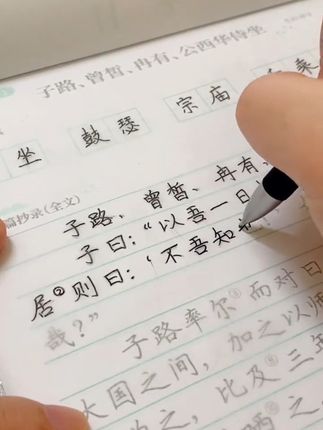 子路、曾皙、冉有、公西华侍坐
坐 鼓瑟 宗庙
抄录(全文)
子路、曾皙、冉有、
子曰:“以吾一日
居②则曰:‘不吾知
哉?”
子路率尔③而对曰
大国之间,加之以师
之,比及三年
哂之